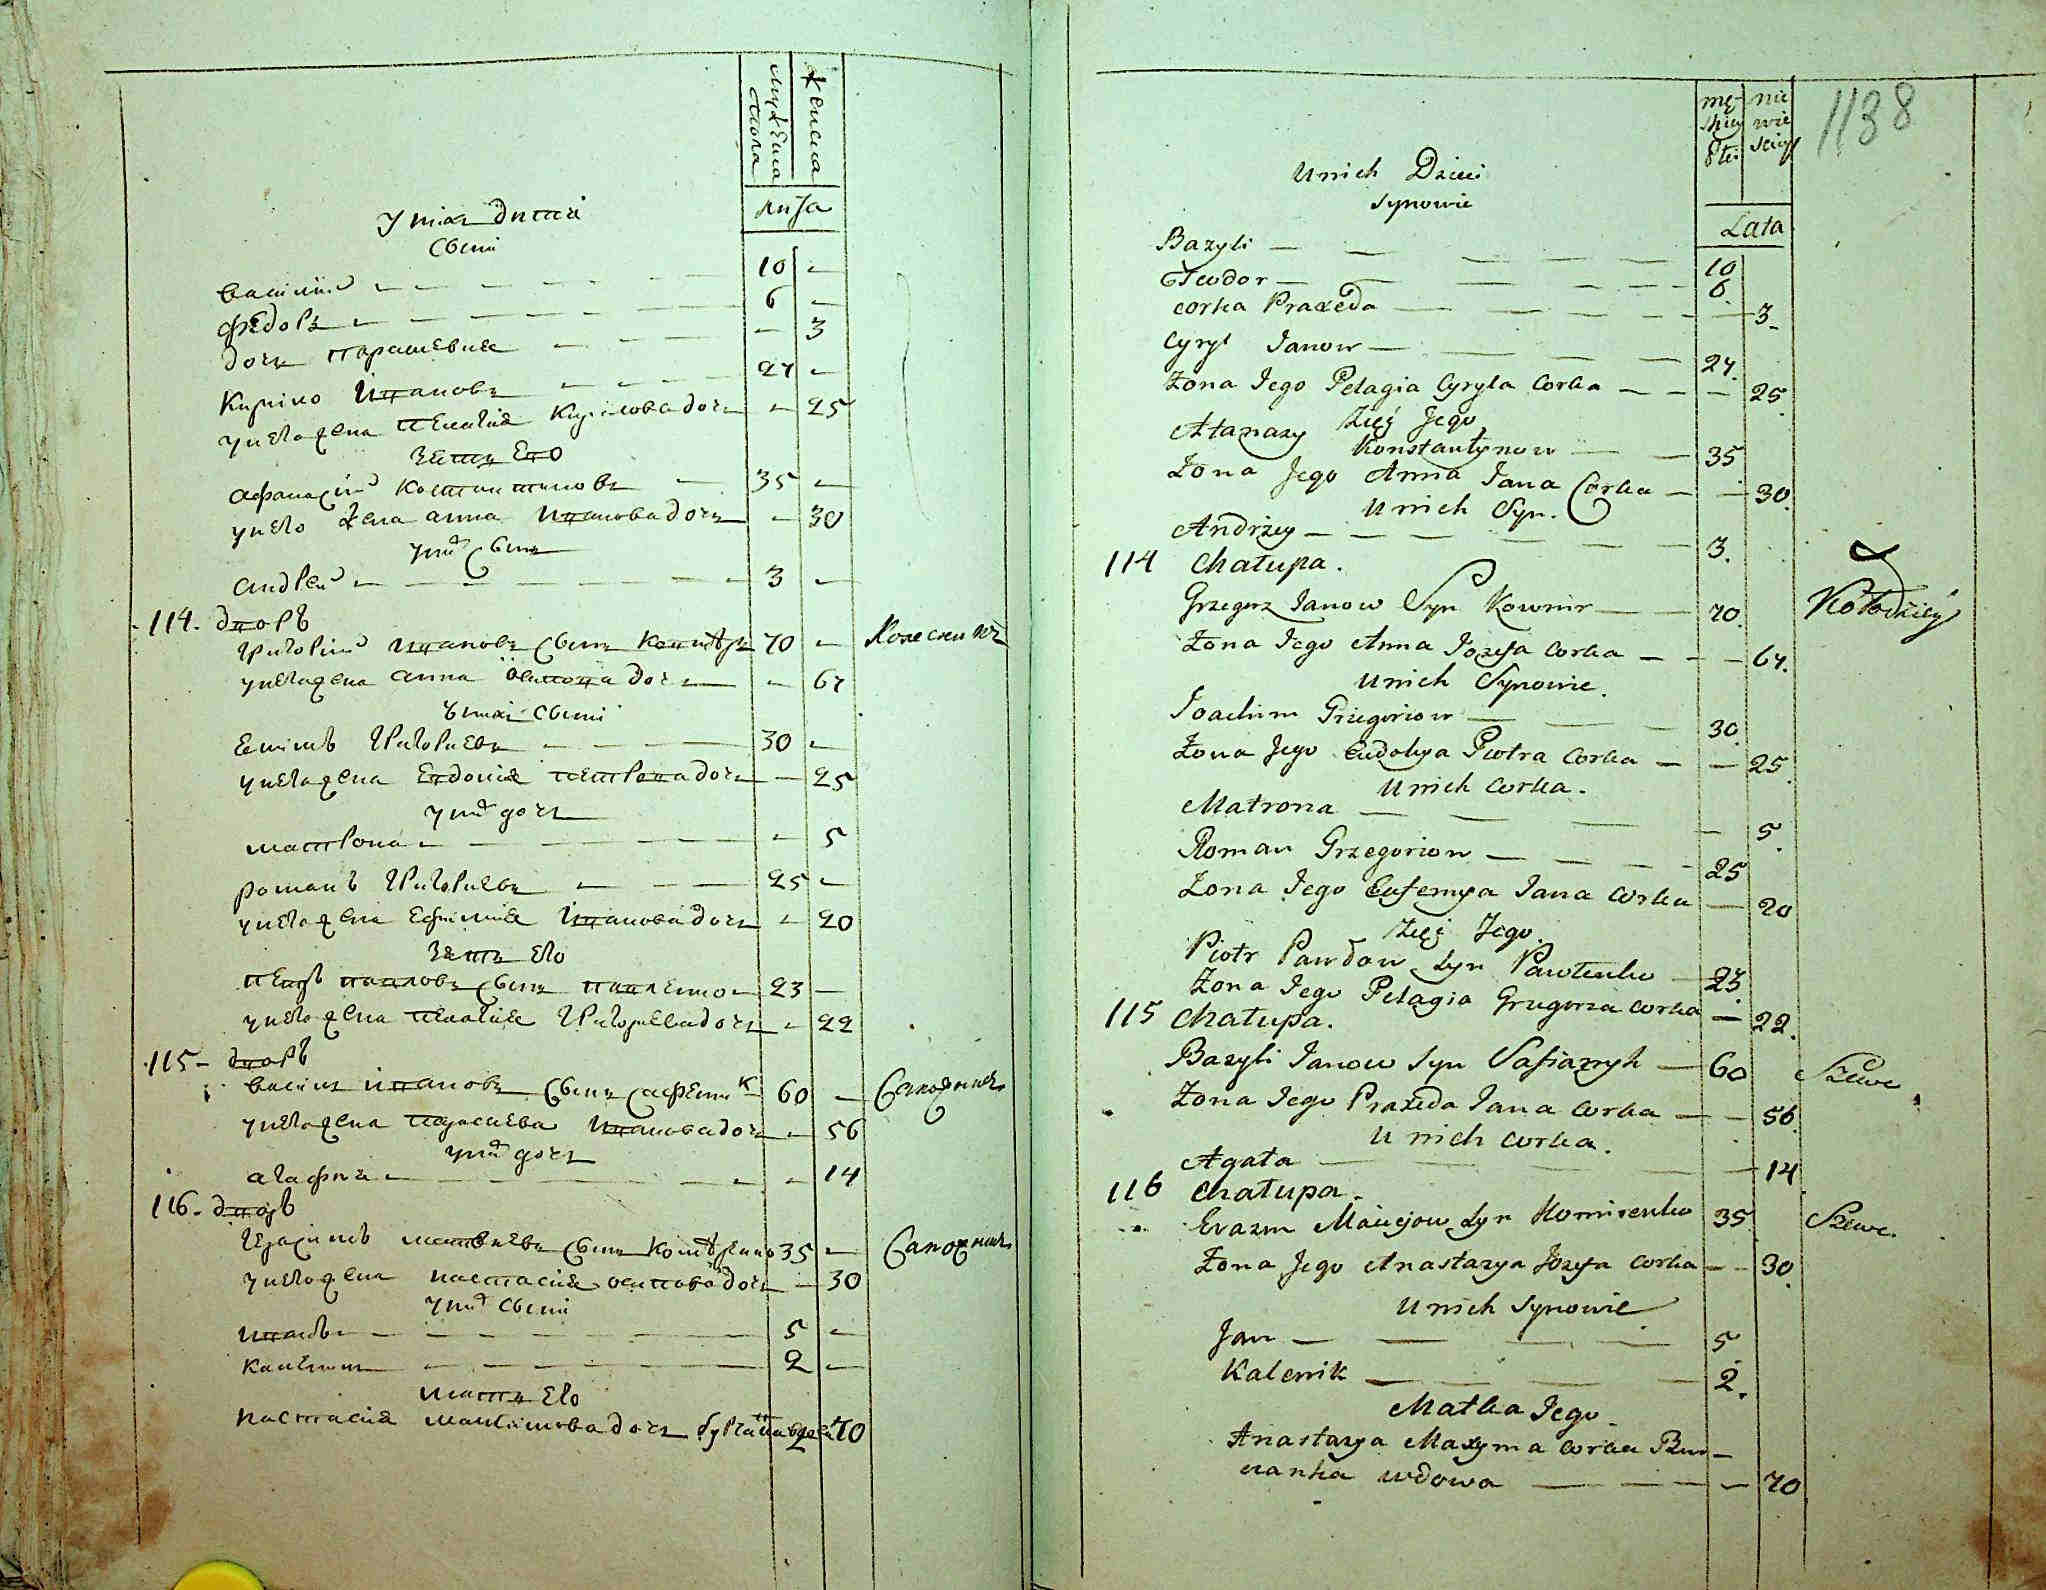 мужеска
пола
женска
лѣта
у них дети
сыни
василий — 10 —
Федоръ — 6 —
дочь парасъкевия — — 3
Кирило Ивановъ — 27 —
у него жена Пелагия Кирилова дочь — 25
зять Его
афанасий Костянтиновъ — 35 —
у него жена анна Иванова дочь — 30
у них сынъ
андрей — 3 —
114. дворъ
Григорий Ивановъ сынъ Ковнѣръ 70 — Колесникъ
у него жена анна Осипова дочь — 67
у них сыни
Екимъ Григориевъ — 30 —
у него жена Евдокия петрова дочь — 25
у них дочь
матрона — — 5
романъ Григориевъ — 25 —
у него жена Ефимия Иванова дочь — 20
зять его
петръ павловъ сынъ павленко 23 —
у него жена пелагия Григориева дочь — 22
115 – дворъ
василь ивановъ сынъ 60 — Сапожникъ
у него жена Иванова дочь — 56
у них дочь
агафия — — 14
116. дворъ
Герасимъ матвѣевъ сынъ 35 — Сапожникъ
у него жена настасия осипова дочь — 30
у них сыни
иванъ — 5 —
каленик — 2 —
мать его
настасия максимова дочь 70
1138
mę-
skiey
płci
nie
wie
sciey
Lata
U nich Dzieci
Synowie
Bazyli — 10
Teodor — 6.
corka Praxeda — 3.
Cyryl Janow — 27.
Zona Jego Pelagia Cyryla Corka — 25.
Zięć Jego
Atanazy Konstantynow — 35
Zona Jego Anna Jana Corka — 30.
U nich Syn.
Andrzey — 3.
114 Chałupa.
Grzegorz Janow Syn Kownir — 70. Kołodziey
Zona Jego Anna Jozefa Corka — 67.
U nich Synowie.
Joachim Grzegoriow — 30.
Zona Jego Eudokya Piotra Corka — 25.
U nich Corka.
Matrona — 5.
Roman Grzegoriow — 25
Zona Jego Eufemya Jana Corka — 20
Zięć Jego.
Piotr Pawłow Syn Pawlenko — 23.
Zona Jego Pelagia Grzegorza Corka — 22.
115 Chałupa.
Bazyli Janow Syn Safianyk — 60 Szewc
Zona Jego Praxeda Jana Corka — 56.
U nich Corka.
Agata — 14
116 Chałupa.
Erazm Maciejow Syn 35 Szewc.
Zona Jego Anastazya Jozefa Corka — 30.
U nich Synowie
Jan — 5
Kalenik — 2.
Matka Jego
Anastazya Maxyma Corka
wdowa — 70